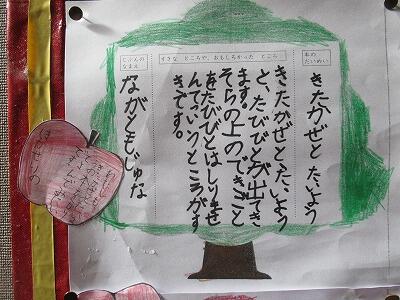 本の
だいめい
きたかぜと たいよう
すきな ところや、おもしろかった ところ
きたかぜと、たいよう
と、たびびとが出てき
ます。
そらの上のできごと
をたびびととはしりませ
んでいうところがす
きです。
じぶんの
なまえ
ながともじゅな